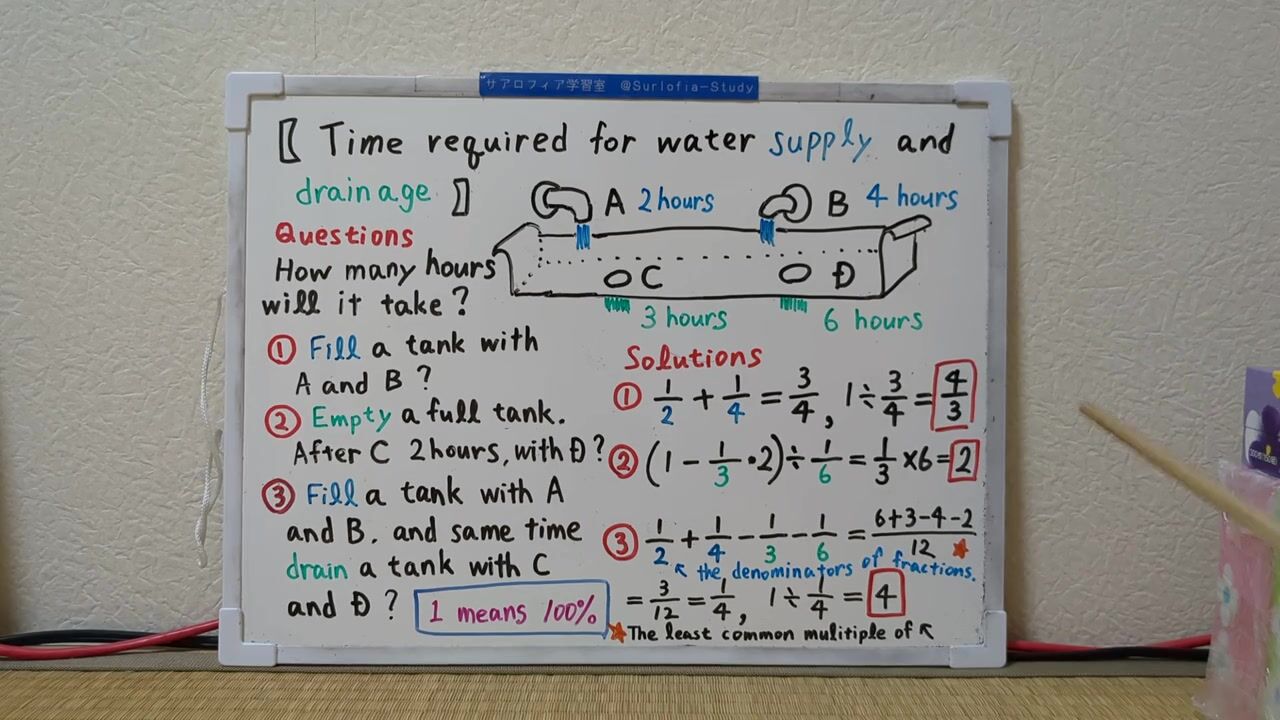 サアロフィア学習室 @Surlofia-Study
【 Time required for water supply and
drainage 】
A 2 hours
B 4 hours
C
D
3 hours
6 hours
Questions
How many hours
will it take?
① Fill a tank with
A and B?
② Empty a full tank.
After C 2 hours, with D?
③ Fill a tank with A
and B, and same time
drain a tank with C
and D?
1 means 100%
Solutions
① 1/2 + 1/4 = 3/4, 1 ÷ 3/4 = 4/3
② (1 - 1/3 • 2) ÷ 1/6 = 1/3 × 6 = 2
③ 1/2 + 1/4 - 1/3 - 1/6 = (6+3-4-2)/12 ★
↖ the denominators of fractions.
= 3/12 = 1/4, 1 ÷ 1/4 = 4
★ The least common mulitiple of ↖